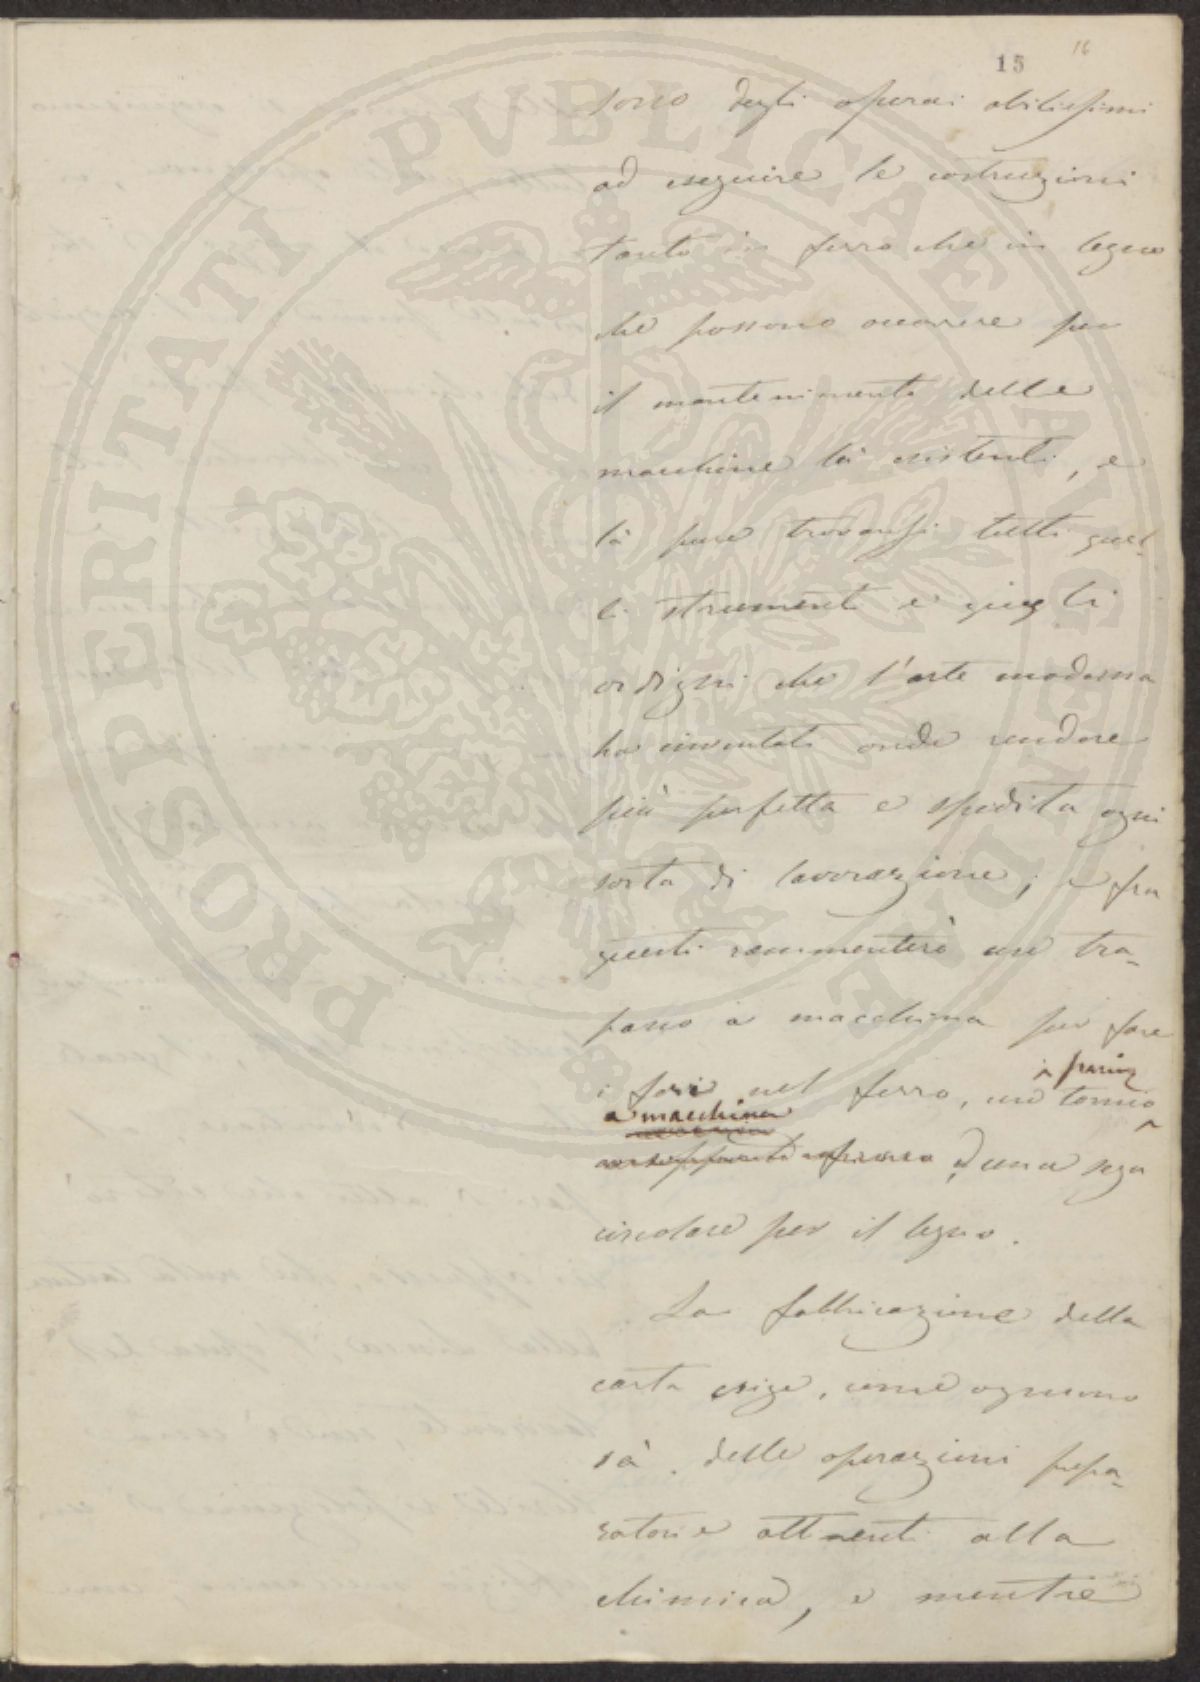 15 16
sono degli operai abilissimi
ad eseguire le costruzioni
tanto in ferro che in legno
che possono occorrere per
il mantenimento delle
macchine là esistenti, e
là pure trovansi tutti quel-
li strumenti e quegli
ordigni che l'arte moderna
ha inventati onde rendere
più perfetta e spedita ogni
sorta di lavorazione; e fra
questi rammenterò un tra-
pano a macchina per fare
i fori nel ferro, un tornio
a macchina
ed una sega
circolare per il legno.
La fabbricazione della
carta esige, come ognuno
sà, delle operazioni prepa-
ratorie attinenti alla
chimica, e mentre
PROSPERITATI PVBLICAE AVGENDAE